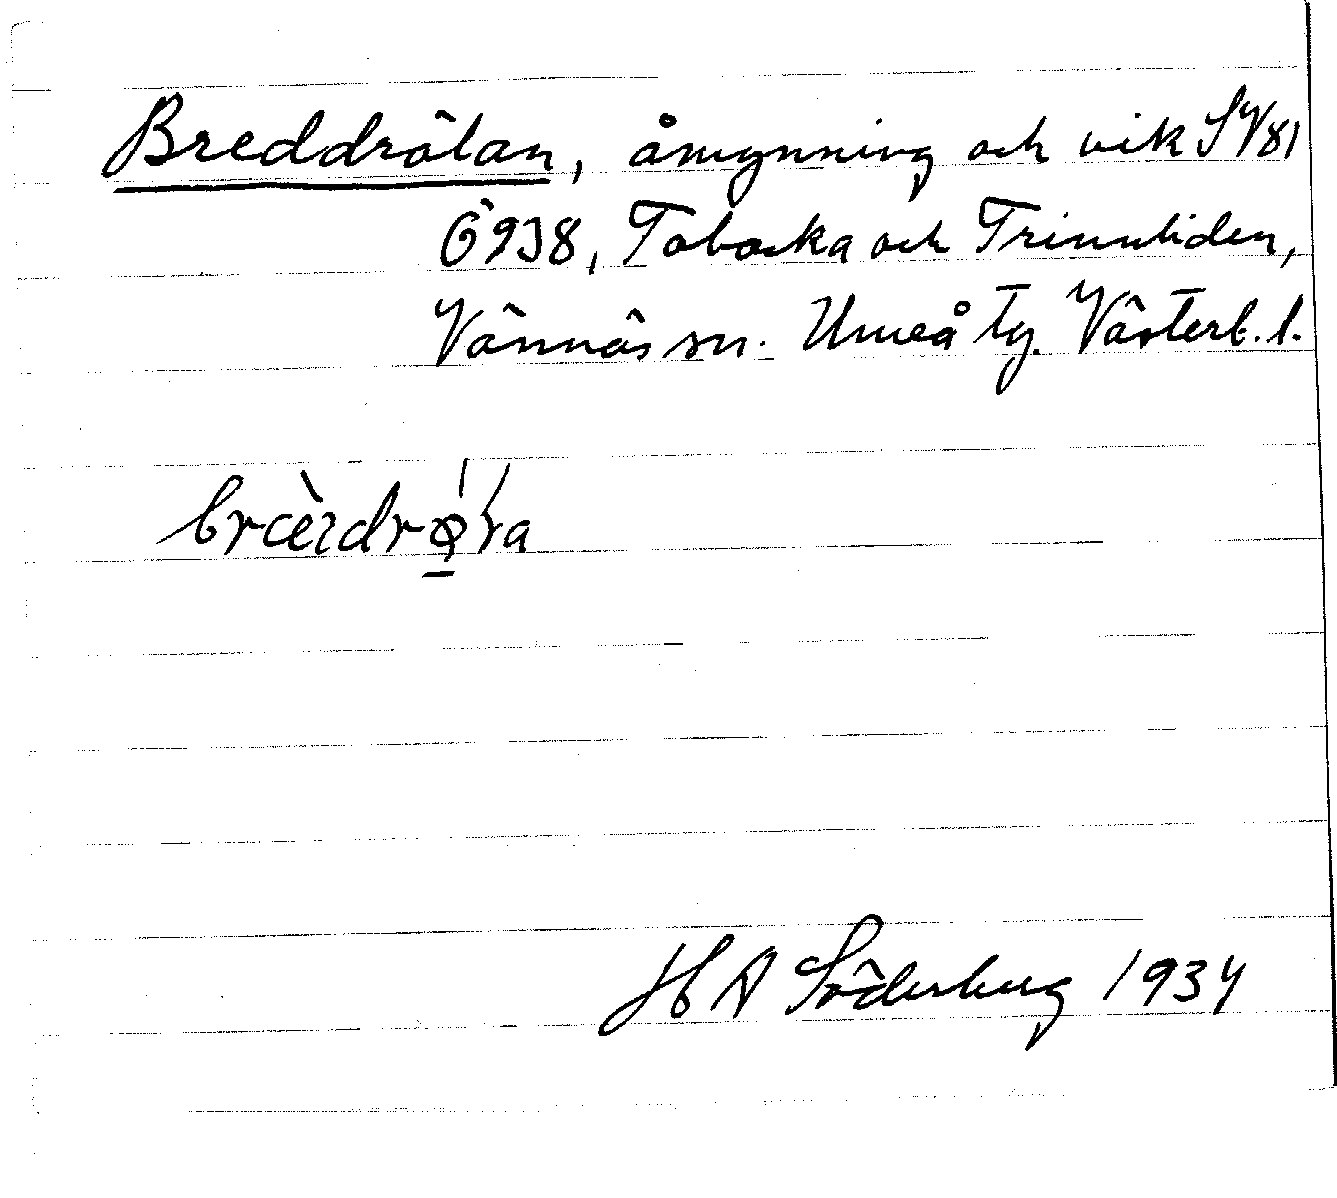 Breddrölan, åmynning och vik SV81
Ö938, Tobacka och Trinnliden,
Vännäs sn. Umeå tg. Västerb. l.
H A Söderberg 1934